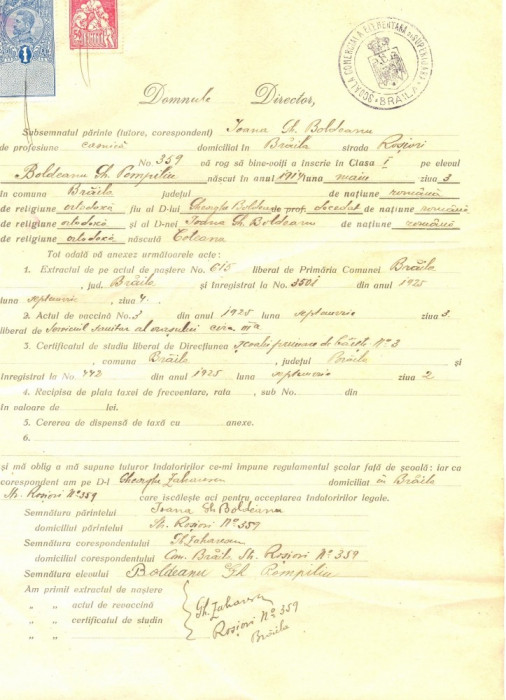 ȘCOALA COMERCIALĂ ELEMENTARĂ ȘI SUPERIOARĂ * BRĂILA *
1
Domnule Director,
Subsemnatul părinte (tutore, corespondent) Ioana Gh. Boldeanu
de profesiune casnică domiciliat în Brăila strada Roșiori
No. 359 vă rog să bine-voiți a înscrie în Clasa I pe elevul
Boldeanu Gh. Pompiliu născut în anul 1914 luna maiu ziua 3
în comuna Brăila județul de națiune română
de religiune ortodoxă fiu al D-lui Gheorghe Boldeanu de prof. decedat de națiune română
de religiune ortodoxă și al D-nei Ioana Gh. Boldeanu de națiune română
de religiune ortodoxă născută Coleanu
Tot odată vă anexez următoarele acte:
1. Extractul de pe actul de naștere No. 615 liberat de Primăria Comunei Brăila
, jud. Brăila și înregistrat la No. 3501 din anul 1925
luna septemvrie, ziua 4.
2. Actul de vaccină No. 3 din anul 1925 luna septemvrie ziua 3.
liberat de Serviciul sanitar al orașului circ. III a
3. Certificatul de studia liberat de Direcțiunea școalei primare de băieți No 3
, comuna Brăila, județul Brăila și
înregistrat la No. 442 din anul 1925 luna septemvrie ziua 2
4. Recipisa de plata taxei de frecventare, rata , sub No. din
în valoare de lei.
5. Cererea de dispensă de taxă cu anexe.
6.
și mă oblig a mă supune tuturor îndatoririlor ce-mi impune regulamentul școlar față de școală: iar ca
corespondent am pe D-l Gheorghe Zaharescu domiciliat în Brăila
Str. Roșiori No 359 care iscălește aci pentru acceptarea îndatoririlor legale.
Semnătura părintelui Ioana Gh Boldeanu
domiciliul părintelui Str. Roșiori No 359
Semnătura corespondentului Gh Zaharescu
domiciliul corespondentului Com. Brăila Str. Roșiori No 359
Semnătura elevului Boldeanu Gh Pompiliu
Am primit extractul de naștere
„ „ actul de revaccină
„ „ certificatul de studiu
„ „
Gh. Zaharescu
Roșiori No 359
Brăila